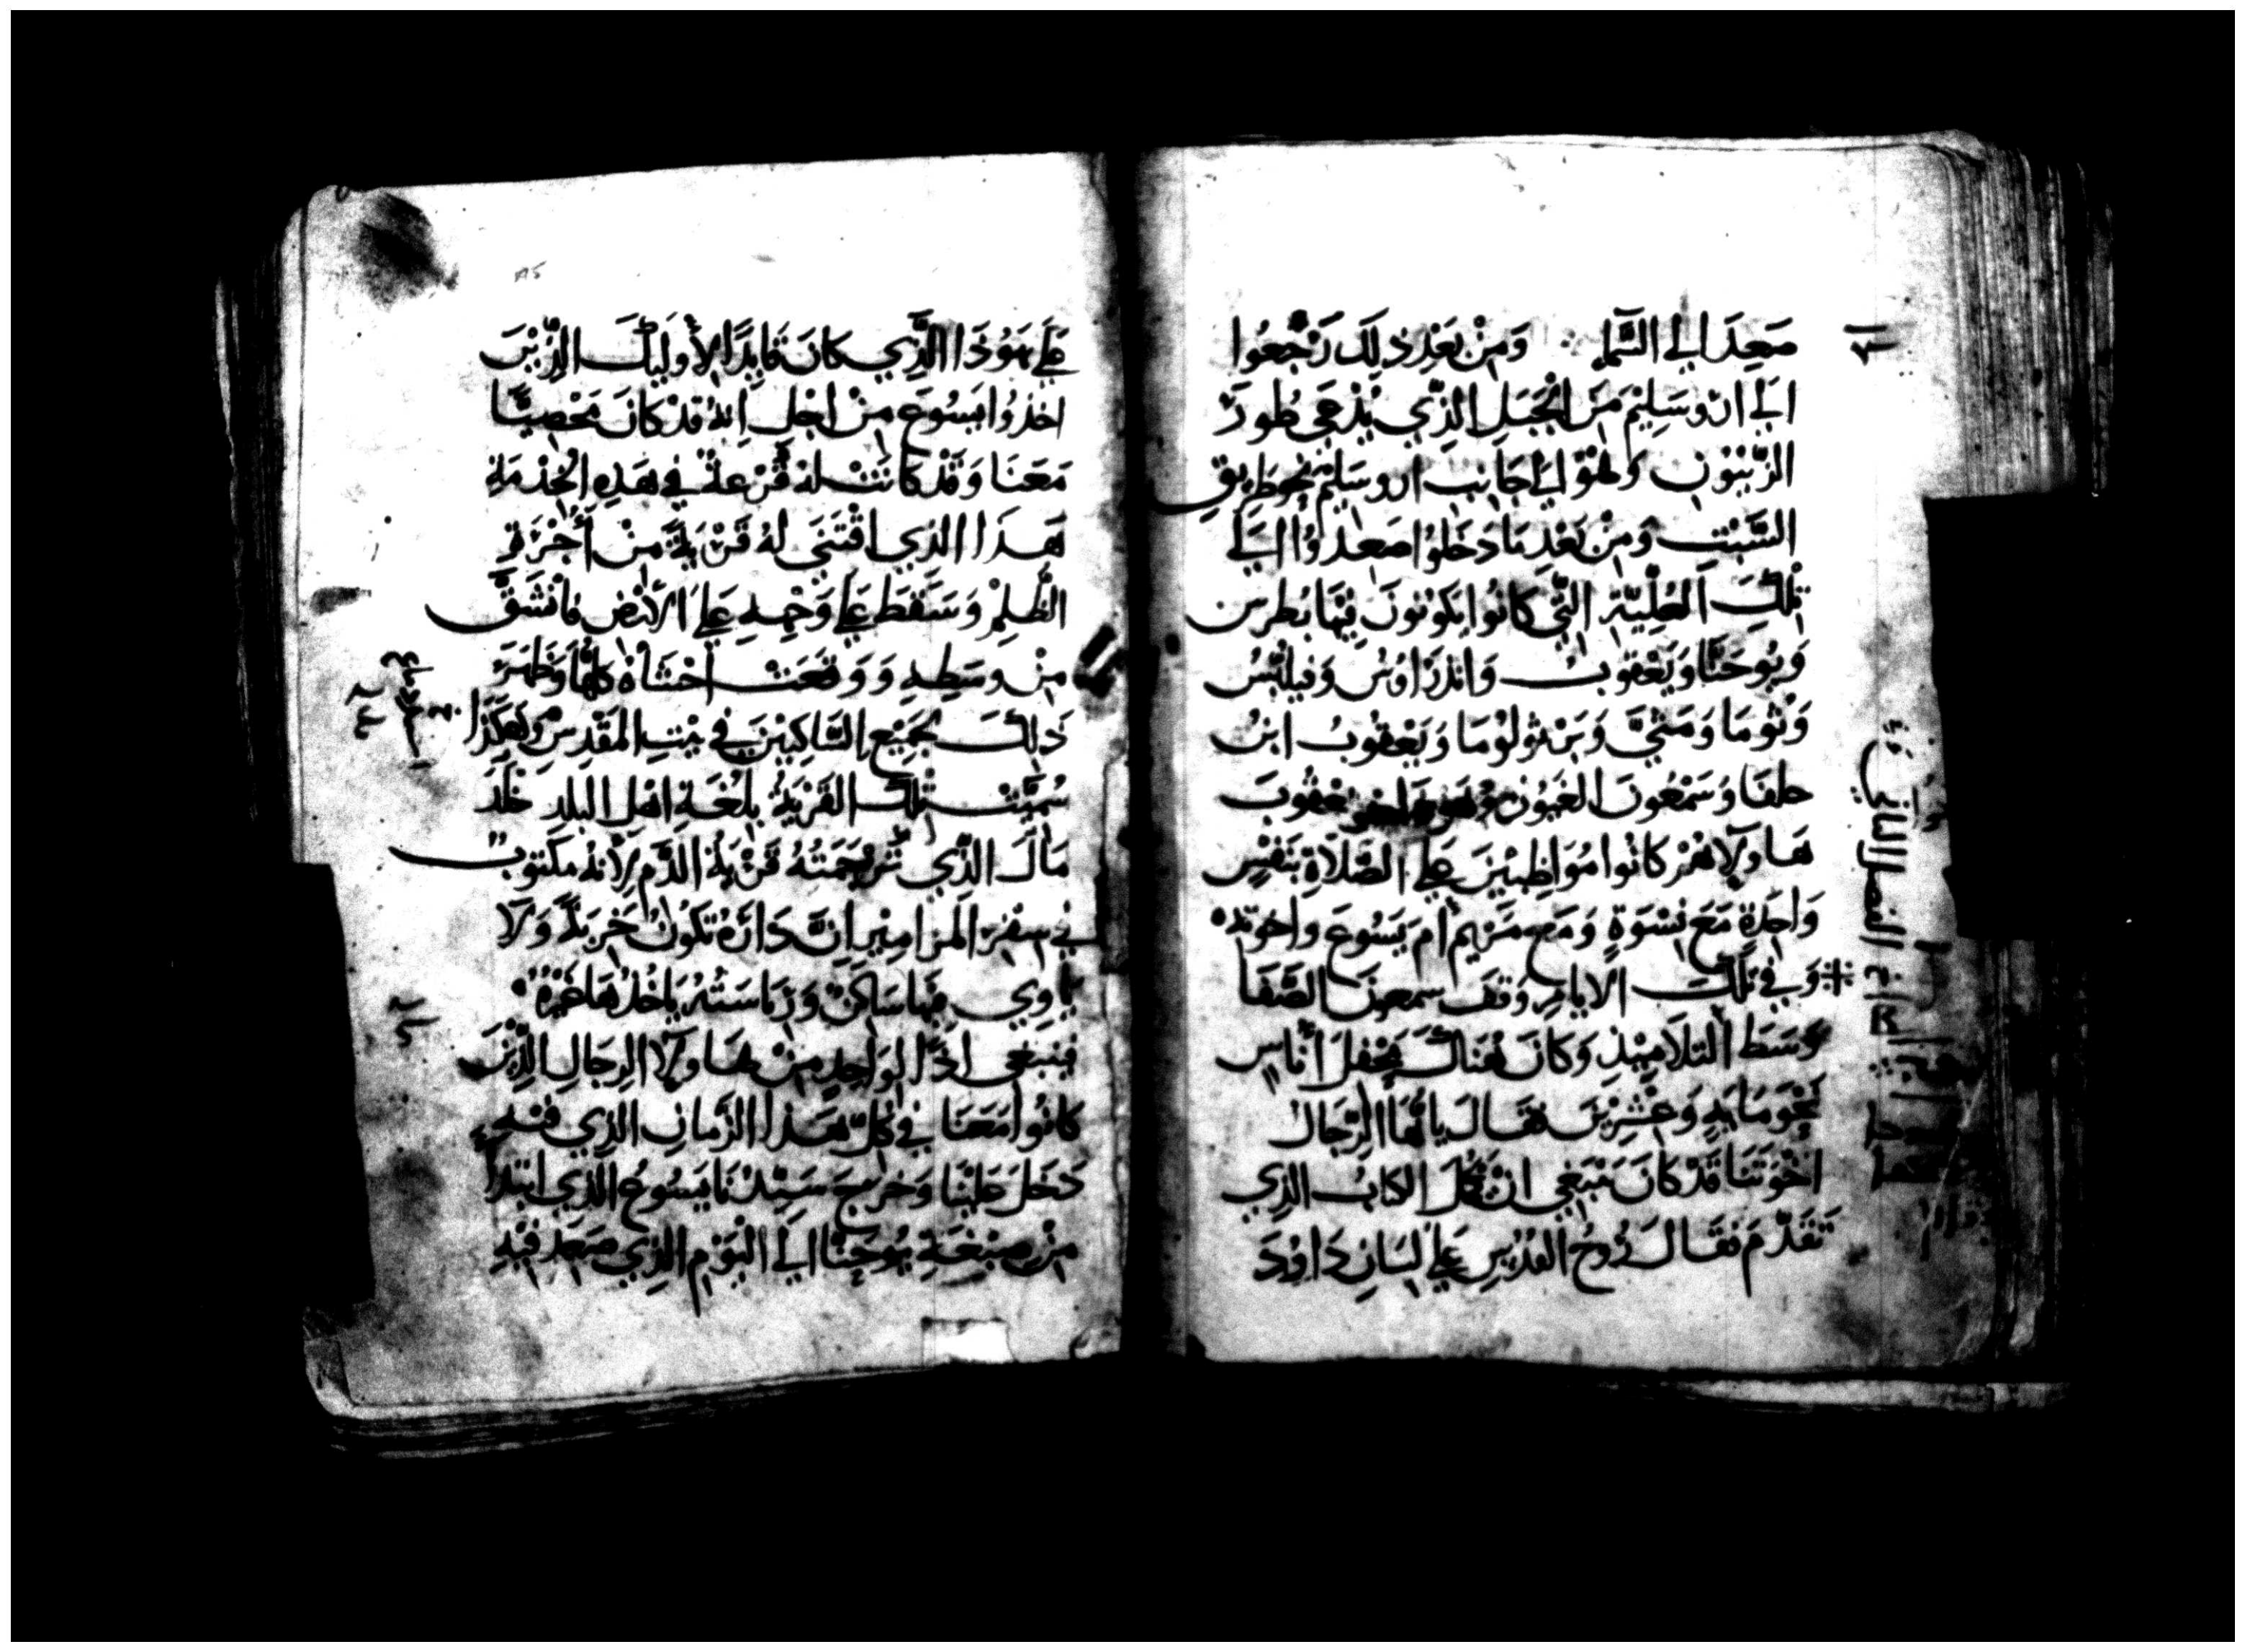 صَعِدَ الي السَّمآ ٠: وَمِنْ بَعْدِ ذلِكَ رَجَعُوا
الَي اورسَلِيْمَ مِنَ الْجَبَلِ الذِّي يُدْعَي طُورَ
الزَّيْتوُنِ وَهُوَ الَي جَانِبِ اورسَلِيْمَ نحْوَ طَريقِ
السَّبْتِ وَمِنْ بَعْدِ مَا دَخَلوُا صَعدوُا الَي
تِلْكَ العُلِّيَّةِ التِّي كَانُوا يَكوُنوُنَ فِيْهَا بُطرسُ
وَيُوحَنَّا وَيَعْقوُبُ وَانْدرَاوُسُ وَفيلبُّسُ
وَتوُمَا وَمَتَّي وَبَرْثوُلوُمَا وَيَعْقوُبُ ابنُ
حلفَا وَسَمْعُونَ الغَيوُرُ وَيَهوُذا اخو يَعْقوُبَ
هَاولآءِ هُمْ كانُوا مُوَاظِبيْنَ عَلي الصَّلاةِ بنَفْسٍ
وَاحِدَةٍ مَعَ نِسْوَةٍ وَمَعَ مَرْيم أم يَسُوعَ وَاخوتهِ
وَفي تِلْكَ الايامِ وَقفَ سمعونُ الصَّفَا
وَسَطَ التلَامِيْذِ وَكانَ هُنَاكَ مَحْفِلَ أناسٍ
نَحْوَ مَايةٍ وَعِشِرِيْنَ فقَالَ يا أيُّهَا الرِّجَالُ
اخْوَتَنَا قَدْ كانَ يَنْبَغِي ان يَكْمُلَ الكِتابُ الذِي
تَقدَّمَ فقَالَ رُوحُ القُدُسِ عَلي لِسَانِ دَاوُدَ
عَلَي يَهوُذَا الَّذِي كانَ قَايِدًا لأولَيِكَ الذِّيْنَ
اخذوُا يَسُوعَ مِنْ اجْلِ اِنهُ قدْ كانَ مَحْصِيًّا
مَعَنَا وَقَدْ كانَتْ لهُ قُرْعَةٌ في هَذِهِ الخِدْمَةِ
هَذَا الذِي اقْتَنَي لهُ قَرْيَةً مِنْ أجْرَةِ
الظُّلمِ وَسَقطَ عَلَي وَجْههِ عَلَي الارْضِ فانْشَقَّ
مِنْ وسَطِهِ وَوَقعَتْ احْشَاؤُهُ كلهَا وَظهَرَ
ذَلِكَ لِجَمِيْعِ السَّاكِنِيْنَ فِي بَيْتِ المَقدِسِ وَهَكَذَا
سُمِّيَتْ تِلْكَ القَرْيَةُ بِلُغَةِ اهْلِ البلدِ حَقْلَ
الذِّي تَرْجَمَتُهُ قَرْيَةُ الدَّمِ لِأنَّهُ مَكتوبٌ
فِي سِفْرِ المَزامِيْرِ انَّ دَارَهُ تَكوُنُ خَرِبَةً وَلَا
يَاوِي فِيْهَا سَاكِنٌ وَرِيَاسَتُهُ يَاخُذُهَا غَيْرُهُ
فيَنبَغي اذًا لِوَاحِدٍ مِنْ هَاولآءِ الرِجَالِ الذِّيْنَ
كانُوا مَعَنَا في كُلِّ هَذا الزَّمَانِ الذِي فيْهِ
دَخَلَ عَليْنَا وَخرَجَ سَيِّدُنَا يَسُوعُ الذِي ابْتدَا
مِنْ صِبْغَةِ يُوحَنَّا الَي اليَوْمِ الذِي صَعِدَ فِيْهِ